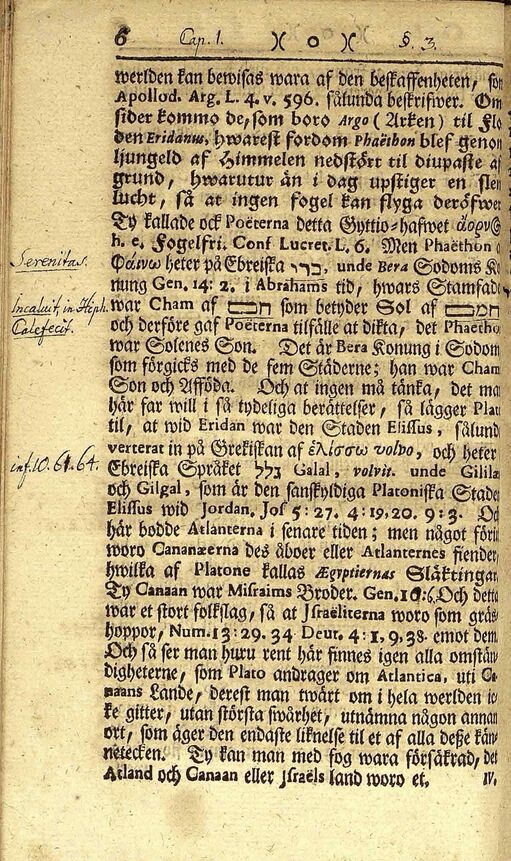 6 Cap. 1. )( o )( §. 3.
werlden kan bewisas wara af den beskaffenheten, som
Apollod. Arg. L. 4. v. 596. sålunda beskrifwer. Om
sider kommo de, som boro Argo (Arken) til Flo
den Eridanus, hwarest fordom Phaëthon blef genon
ljungeld af Himmelen nedstört til diupaste af
grund, hwarutur än i dag upstiger en slem
lucht, så at ingen fogel kan flyga deröfwer
Ty kallade ock Poëterna detta Gyttio-hafwet
h. e. Fogelfri. Conf Lucret. L. 6. Men Phaëthon
Φαίνω heter på Ebreiska, unde Bera Sodoms Ko
Serenitas.
nung Gen. 14: 2. i Abrahams tid, hwars Stamfade
Incaluit, in Hiph.
war Cham af חמם som betyder Sol af
Calefecit.
och derföre gaf Poëterna tilfälle at dikta, det Phaetho
war Solenes Son. Det är Bera Konung i Sodom
som förgicks med de fem Städerne; han war Cham
Son och Afföda. Och at ingen må tänka, det ma
här far will i så tydeliga berättelser, så lägger Plat
til, at wid Eridan war den Staden Elissus, sålund
verterat in på Grekiskan af ἑλίσσω volvo, och heter
inf. 10. 61. 64.
Ebreiska Språket גלל Galal, volvit. unde Gilila
och Gilgal, som är den sanskyldiga Platoniska Stade
Elissus wid Jordan, Jos 5: 27. 4: 19, 20. 9: 3. Oc
här bodde Atlanterna i senare tiden; men något föri
woro Cananæerna des åboer eller Atlanternes fiender
hwilka af Platone kallas Ægyptiernas Släktingar
Ty Canaan war Misraims Broder. Gen. 10: 6. Och detta
war et stort folkslag, så at Israëliterna woro som gräs
hoppor, Num. 13: 29. 34 Deut. 4: 1. 9. 38. emot dem.
Och så ser man huru rent här finnes igen alla omstän
digheterne, som Plato andrager om Atlantica, uti Ca
naans Lande, derest man twärt om i hela werlden ic
ke gitter, utan största swårhet, utnämna någon annan
ort, som äger den endaste liknelse til et af alla deße kän
netecken. Ty kan man med fog wara försäkrad, det
Atland och Canaan eller Israëls land woro et.
IV.